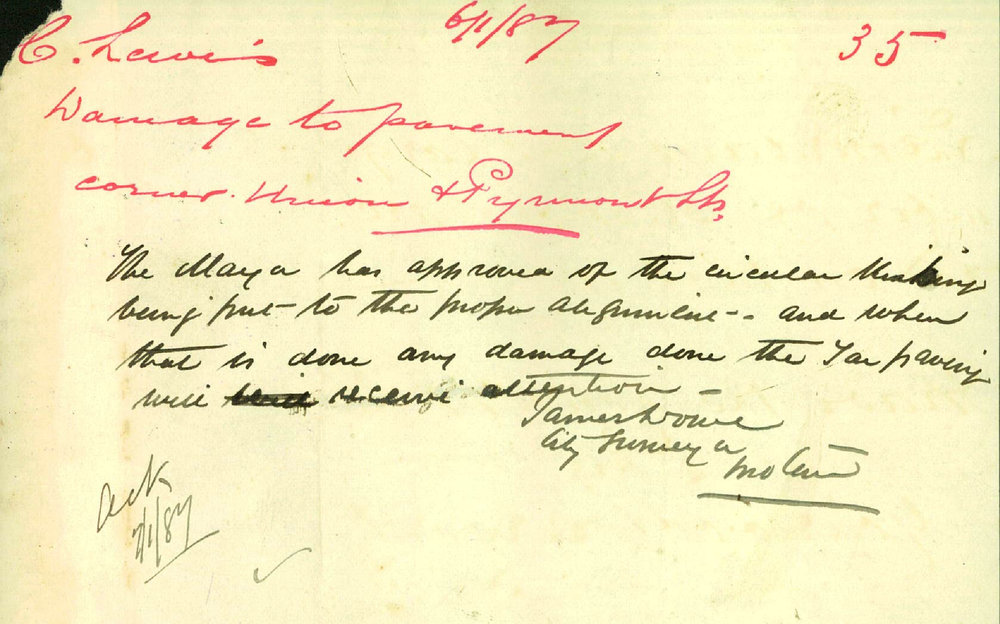 6/1/87
35
C. Lewis
Damage to pavement
corner Union & Pyrmont Sts,
The Mayor has approved of the circular
being put to the proper alignment - and when
that is done any damage done the Tar paving
will receive attention -
James
City Surveyor
Ack
7/1/87